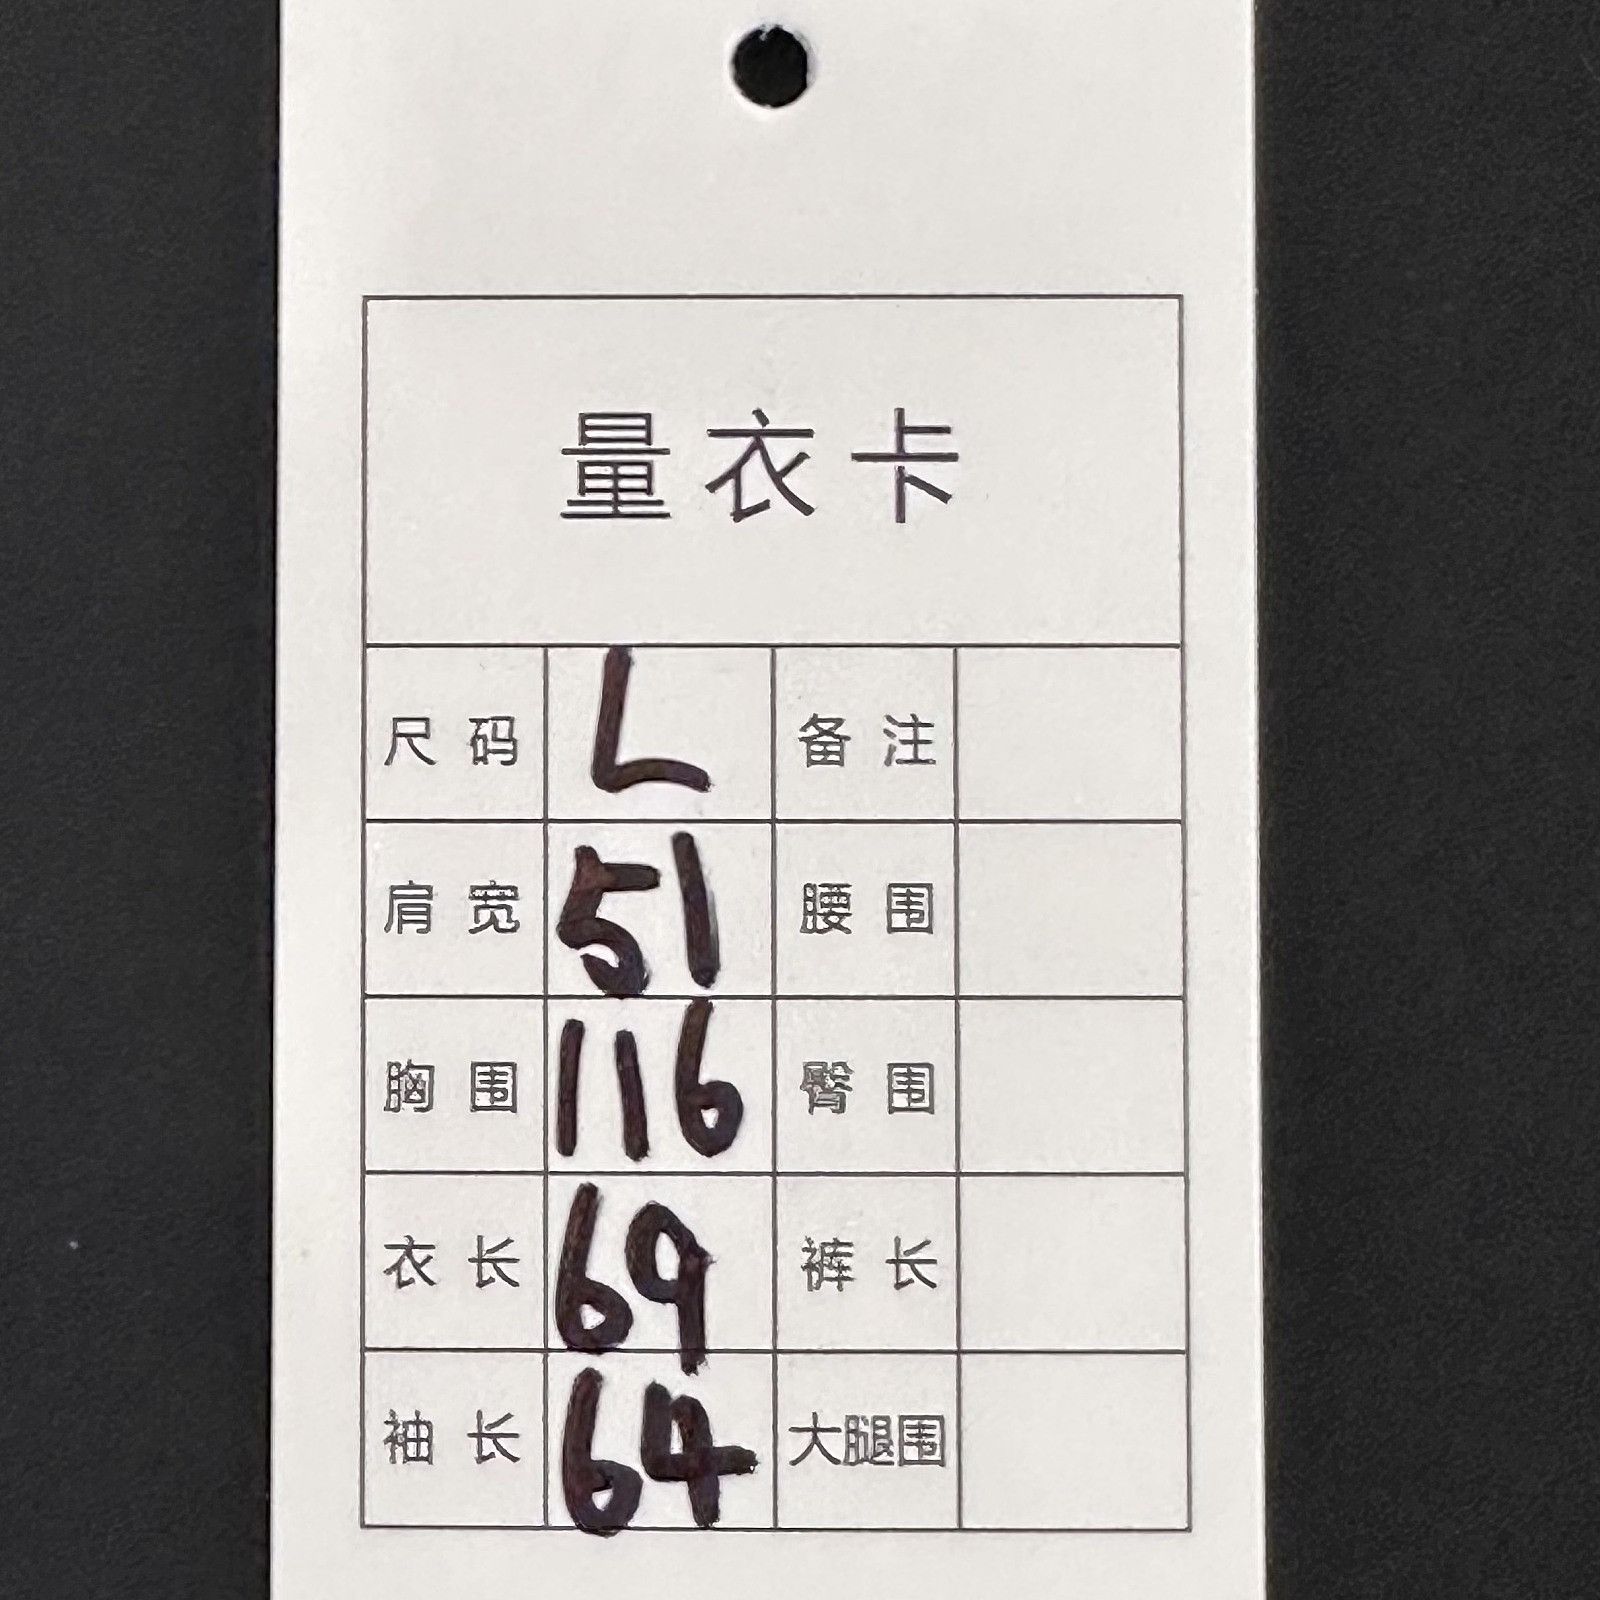 量衣卡
尺码 L 备注
肩宽 51 腰围
胸围 116 臀围
衣长 69 裤长
袖长 64 大腿围